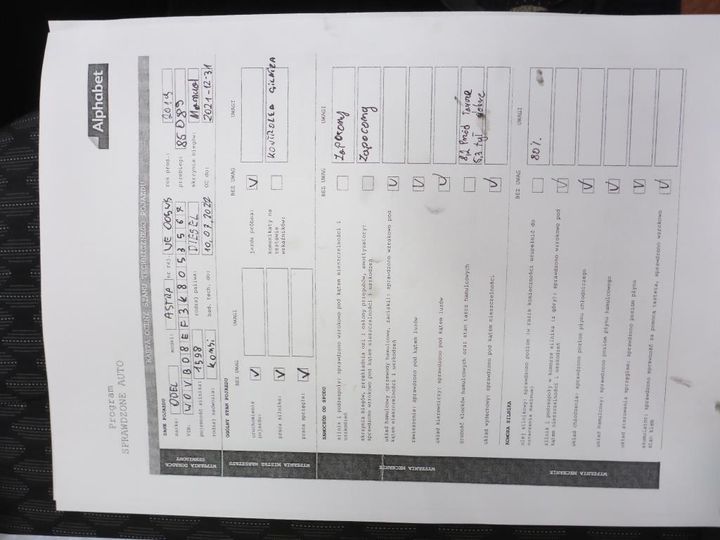 Alphabet
Program
SPRAWDZONE AUTO
KARTA OCENY STANU TECHNICZNEGO POJAZDU
DANE POJAZDU
marka: OPEL model: ASTRA nr rej.: rok prod.: 2013
VIN: W0VBD8EF3K8053567 przebieg: 86089
pojemność silnika: 1598 rodzaj paliwa: DIESEL skrzynia biegów: Manual
rodzaj nadwozia: Kombi bad. tech. do: OC do: 2021-12-31
OGÓLNY STAN POJAZDU
BEZ UWAG UWAGI BEZ UWAG UWAGI
uruchomienie pojazdu: jazda próbna:
praca silnika: komunikaty na zestawie wskaźników: KONTROLKA SILNIKA
praca sprzęgła:
SAMOCHÓD OD SPODU
BEZ UWAG UWAGI
silnik i podzespoły: sprawdzono wzrokowo pod kątem nieszczelności i uszkodzeń Zapocony
skrzynia biegów, przekładnia osi i osłony przegubów, amortyzatory: sprawdzono wzrokowo pod kątem nieszczelności i uszkodzeń Zapocony
układ hamulcowy (przewody hamulcowe, zaciski): sprawdzono wzrokowo pod kątem nieszczelności i uszkodzeń
zawieszenie: sprawdzono pod kątem luzów
układ kierowniczy: sprawdzono pod kątem luzów
grubość klocków hamulcowych oraz stan tarcz hamulcowych
układ wydechowy: sprawdzono pod kątem nieszczelności
KOMORA SILNIKA
BEZ UWAG UWAGI
olej silnikowy: sprawdzono poziom (w razie konieczności uzupełnić do 80%
silnik i podzespoły w komorze silnika (z góry): sprawdzono wzrokowo pod kątem nieszczelności i uszkodzeń
układ chłodzenia: sprawdzono poziom płynu chłodniczego
układ hamulcowy: sprawdzono poziom płynu hamulcowego
sprawdzono poziom płynu
akumulator: sprawdzono sprawność za pomocą testera, sprawdzono wzrokowo stan klem
WYPEŁNIA DORADCA SERWISOWY
WYPEŁNIA MISTRZ WARSZTATU
WYPEŁNIA MECHANIK
WYPEŁNIA MECHANIK